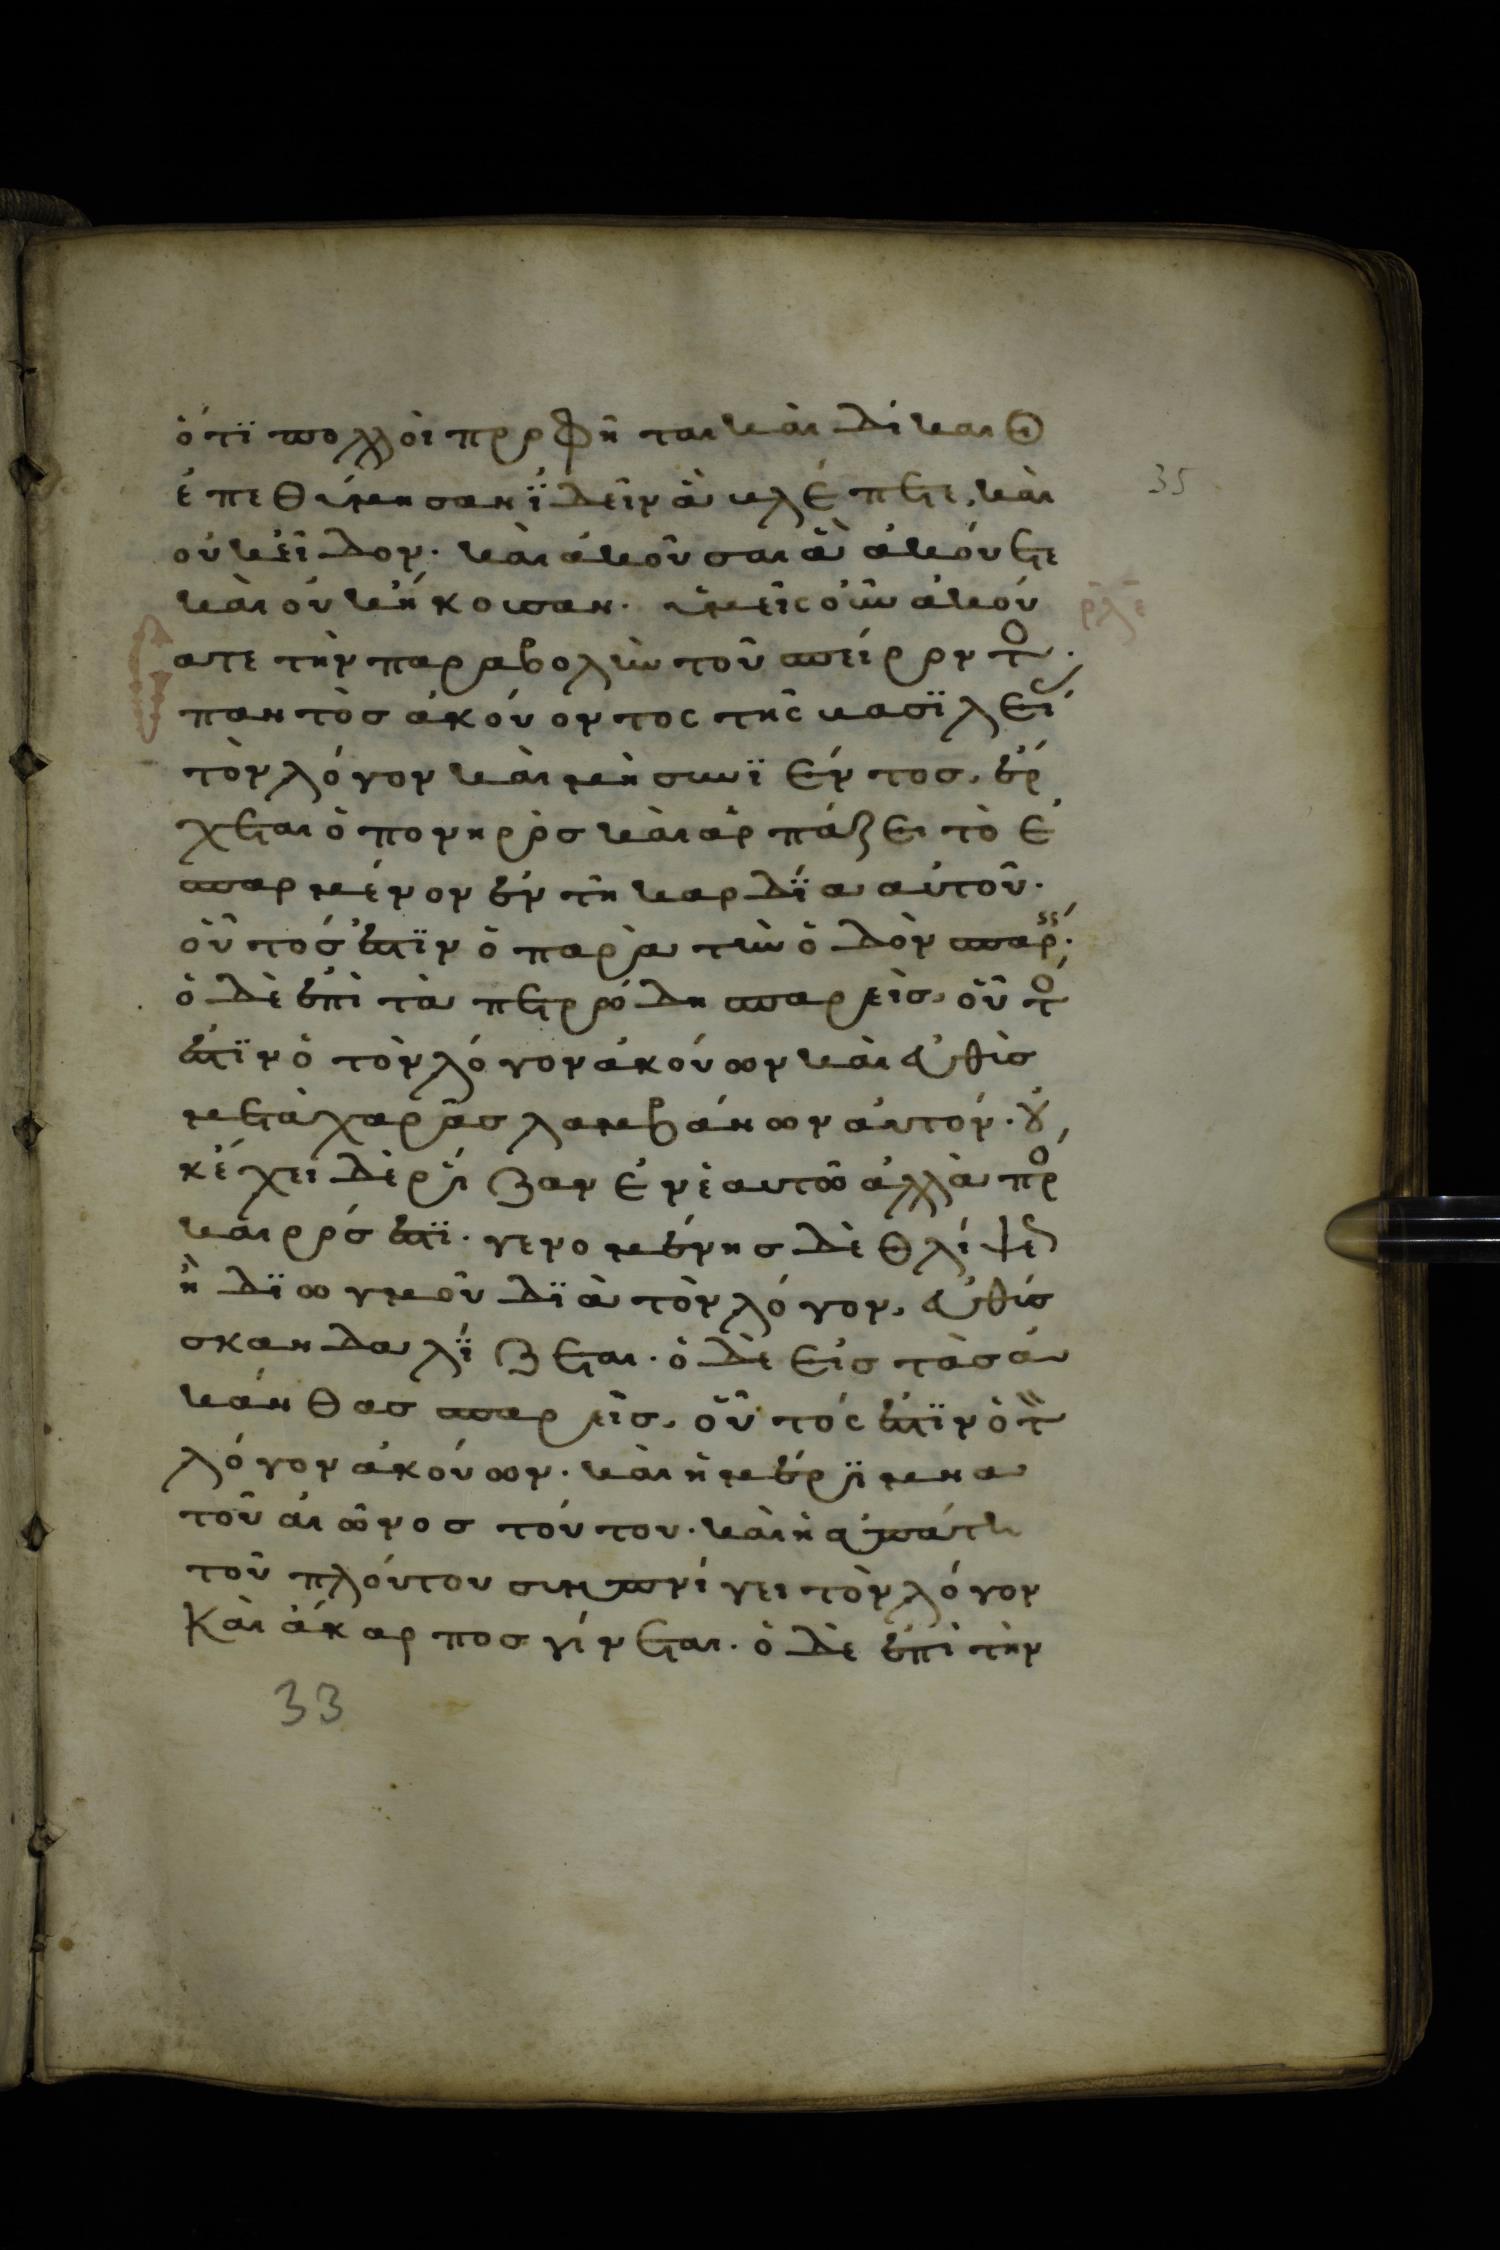 ὅτϊ πολλοὶ προφῆται καὶ δίκαιοι
35
ἐπεθύμησαν ἰδεῖν ἃ βλέπετε, καὶ
οὐκ εἶδον· καὶ ἀκοῦσαι ἃ ἀκούετε
καὶ οὐκ ἤκουσαν· ὑμεῖς οὖν ἀκού
ρλε
σατε τὴν παραβολὴν τοῦ σπείροντο·
παντὸσ ἀκούοντος τῆς βασϊλεί
τὸν λόγον καὶ μὴ συνϊέντοσ, ἔρ
χεται ὁ πονηρὸσ καὶ ἁρπάζει τὸ ἐ
σπαρμένον ἐν τῆ καρδΐα αὐτοῦ·
οὗτόσ ἐστϊν ὁ παρὰ τὴν ὁδὸν σπαρ·
ὁ δὲ ἐπὶ τὰ πετρώδη σπαρεὶσ, οὗτο
ἐστϊν ὁ τὸν λόγον ἀκούων καὶ εὐθὺσ
μετὰ χαρᾶσ λαμβάνων αὐτόν· οὐ
κ ἔχει δὲ ῥίζαν ἐν ἑαυτῶ ἀλλὰ προ
καιρόσ ἐστϊ· γενομένησ δὲ θλίψε
ἢ δϊωγμοῦ δϊὰ τὸν λόγον, εὐθύσ
σκανδαλΐζεται· ὁ δὲ εἰσ τὰσ ἀ
κάνθασ σπαρεὶσ, οὗτός ἐστϊν ὁ τ
λόγον ἀκούων· καὶ ἡ μέρϊμνα
τοῦ αἰῶνοσ τούτου· καὶ ἡ ἀπάτη
τοῦ πλούτου συμπνίγει τὸν λόγον
Καὶ ἄκαρποσ γίνεται· ὁ δὲ ἐπὶ τὴν
33